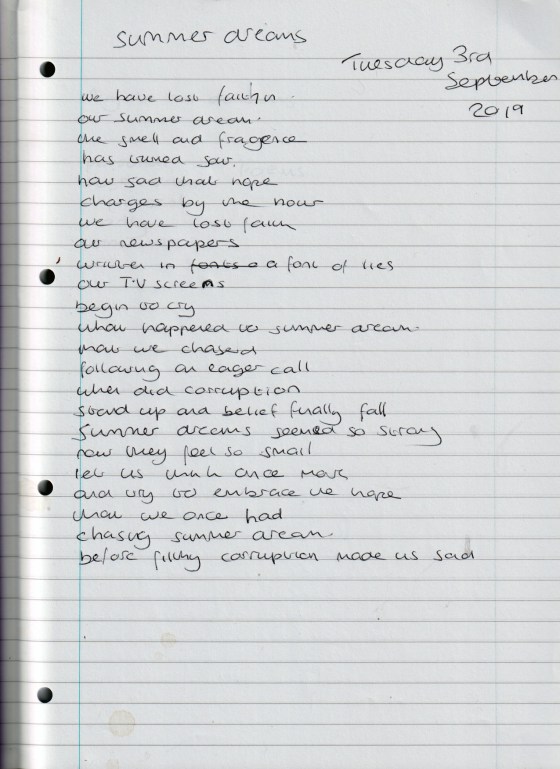 summer dreams
Tuesday 3rd
September
2019
we have lost faith in
our summer dream.
the smell and fragence
has turned sour.
how sad that hope
changes by the hour
we have lost faith
our newspapers
written in fonts o a font of lies
our T.V screens
begin to cry
what happened to summer dream.
that we chased
following an eager call
when did corruption
stand up and belief finally fall
summer dreams seemed so strong
now they feel so small
let us think once more
and try to embrace the hope
that we once had
chasing summer dream.
before filthy corruption made us sad